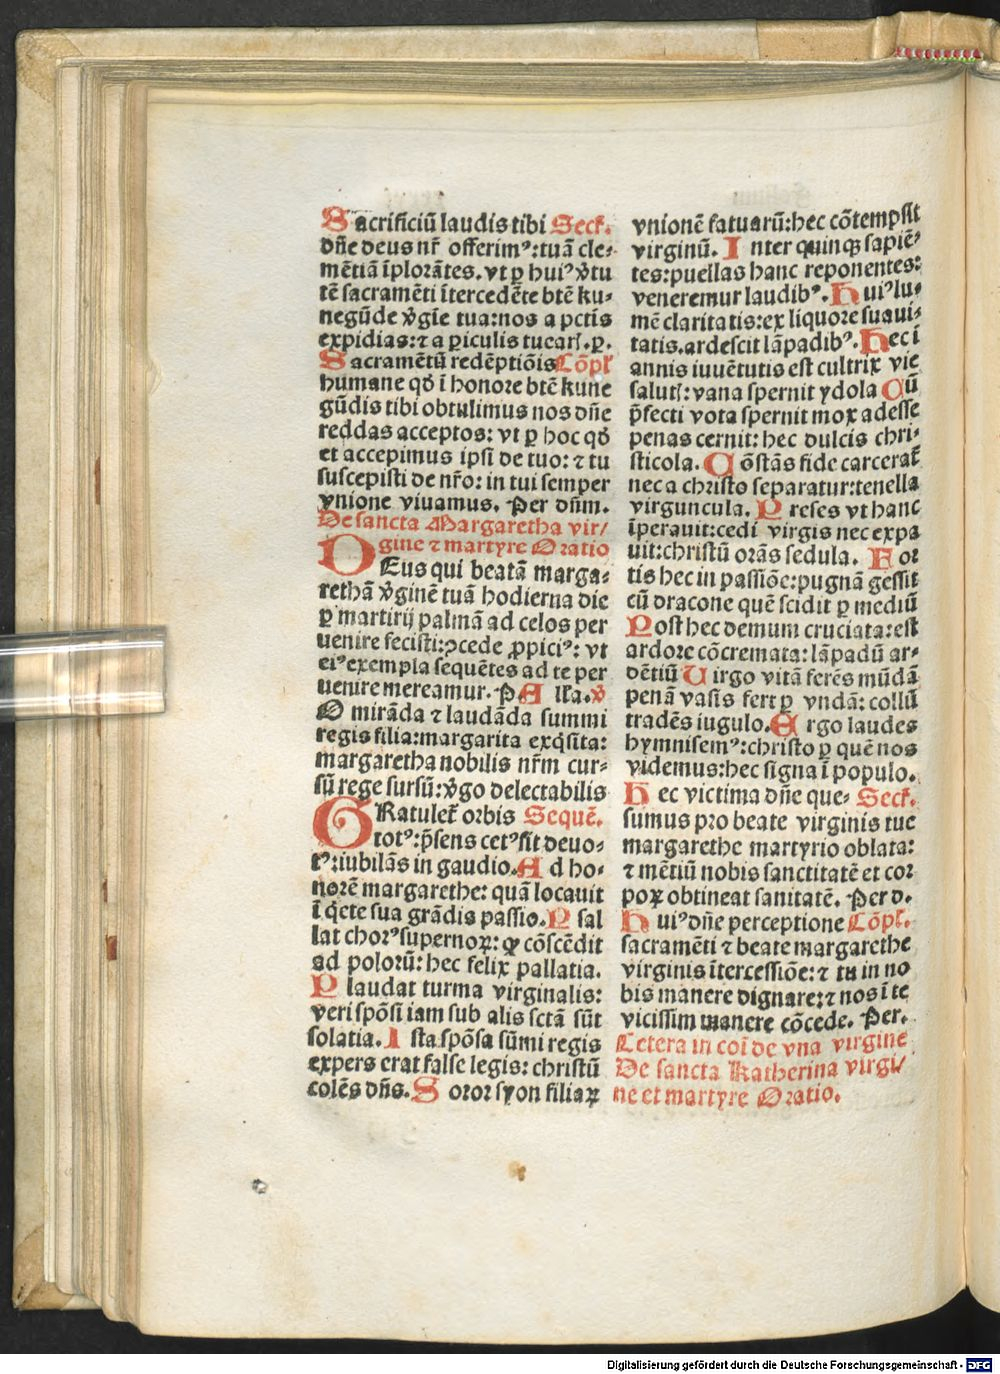 Sacrificiū laudis tibi Secr̄.
dñe deus nr̄ offerimꝰ: tuā cle-
mētiā īplorātes. vt ꝑ huiꝰ v̓tu
tē sacramēti ītercedēte btē ku-
negūde v̓gīe tua: nos a pctīs
expidias: ⁊ a ꝑiculis tuearꝭ. ꝑ.
Sacramētū redēptiōis Cōplꝭ
humane qđ ī honore btē kune
gūdis tibi obtulimus nos dñe
reddas acceptos: vt ꝑ hoc qđ
et accepimus ipsi de tuo: ⁊ tu
suscepisti de nr̄o: in tui semper
vnione viuamus. Per dñm.
De sancta Margaretha vir/
gine ⁊ martyre Oratio
DEus qui beatā marga-
rethā v̓ginē tuā hodierna die
ꝑ martirij palmā ad celos per
uenire fecisti: ꝯcede ꝓpiciꝰ: vt
eiꝰ exempla sequētes ad te per
uenire mereamur. P. Alla. v̓
O mirāda ⁊ laudāda summi
regis filia: margarita exq̄sita:
margaretha nobilis nr̄m cur-
sū rege sursū: v̓go delectabilis
GRatulet̄ orbis Sequē.
totꝰ: p̄sens cetꝰ sit deuo-
tꝰ: iubilās in gaudio. Ad ho-
norē margarethe: quā locauit
ī q̄ete sua grādis passio. Psal
lat chorꝰ supernoꝝ: ꝙ cōscēdit
ad polorū: hec felix pallatia.
Plaudat turma virginalis:
veri spōsi iam sub alis sctā sūt
solatia. Ista spōsa sūmi regis
expers erat false legis: christū
colēs dñs. Soror syon filiaꝝ
vnionē fatuarū: hec cōtempsit
virginū. Inter quinqꝫ sapiē-
tes: puellas hanc reponentes:
veneremur laudibꝰ. Huiꝰ lu-
mē claritatis: ex liquore suaui-
tatis. ardescit lāpadibꝰ. Hec ī
annis iuuētutis est cultrix vie
salutꝭ: vana spernit ydola Cū
p̄fecti vota spernit mox adesse
penas cernit: hec dulcis chri-
sticola. Cōstās fide carcerat̄
nec a christo separatur: tenella
virguncula. Preses vt hanc
īperauit: cedi virgis nec expa
uit: christū orās sedula. For
tis hec in passiōe: pugnā gessit
cū dracone quē scidit ꝑ mediū
Post hec demum cruciata: est
ardore cōcremata: lāpadū ar-
dētiū Uirgo vitā ferēs mūdā
penā vasis fert ꝑ vndā: collū
tradēs iugulo. Ergo laudes
hymnisemꝰ: christo ꝑ quē nos
videmus: hec signa ī populo.
Hec victima dñe que- Secr̄.
sumus pro beate virginis tue
margarethe martyrio oblata:
⁊ mētiū nobis sanctitatē et cor
poꝝ obtineat sanitatē. Per d.
Huiꝰ dñe perceptione Cōplꝭ.
sacramēti ⁊ beate margarethe
virginis ītercessiōe: ⁊ tu in no
bis manere dignare: ⁊ nos ī te
vicissim manere cōcede. Per.
Cetera in coī de vna virgine
De sancta Katherina virgi/
ne et martyre Oratio.
Digitalisierung gefördert durch die Deutsche Forschungsgemeinschaft - DFG